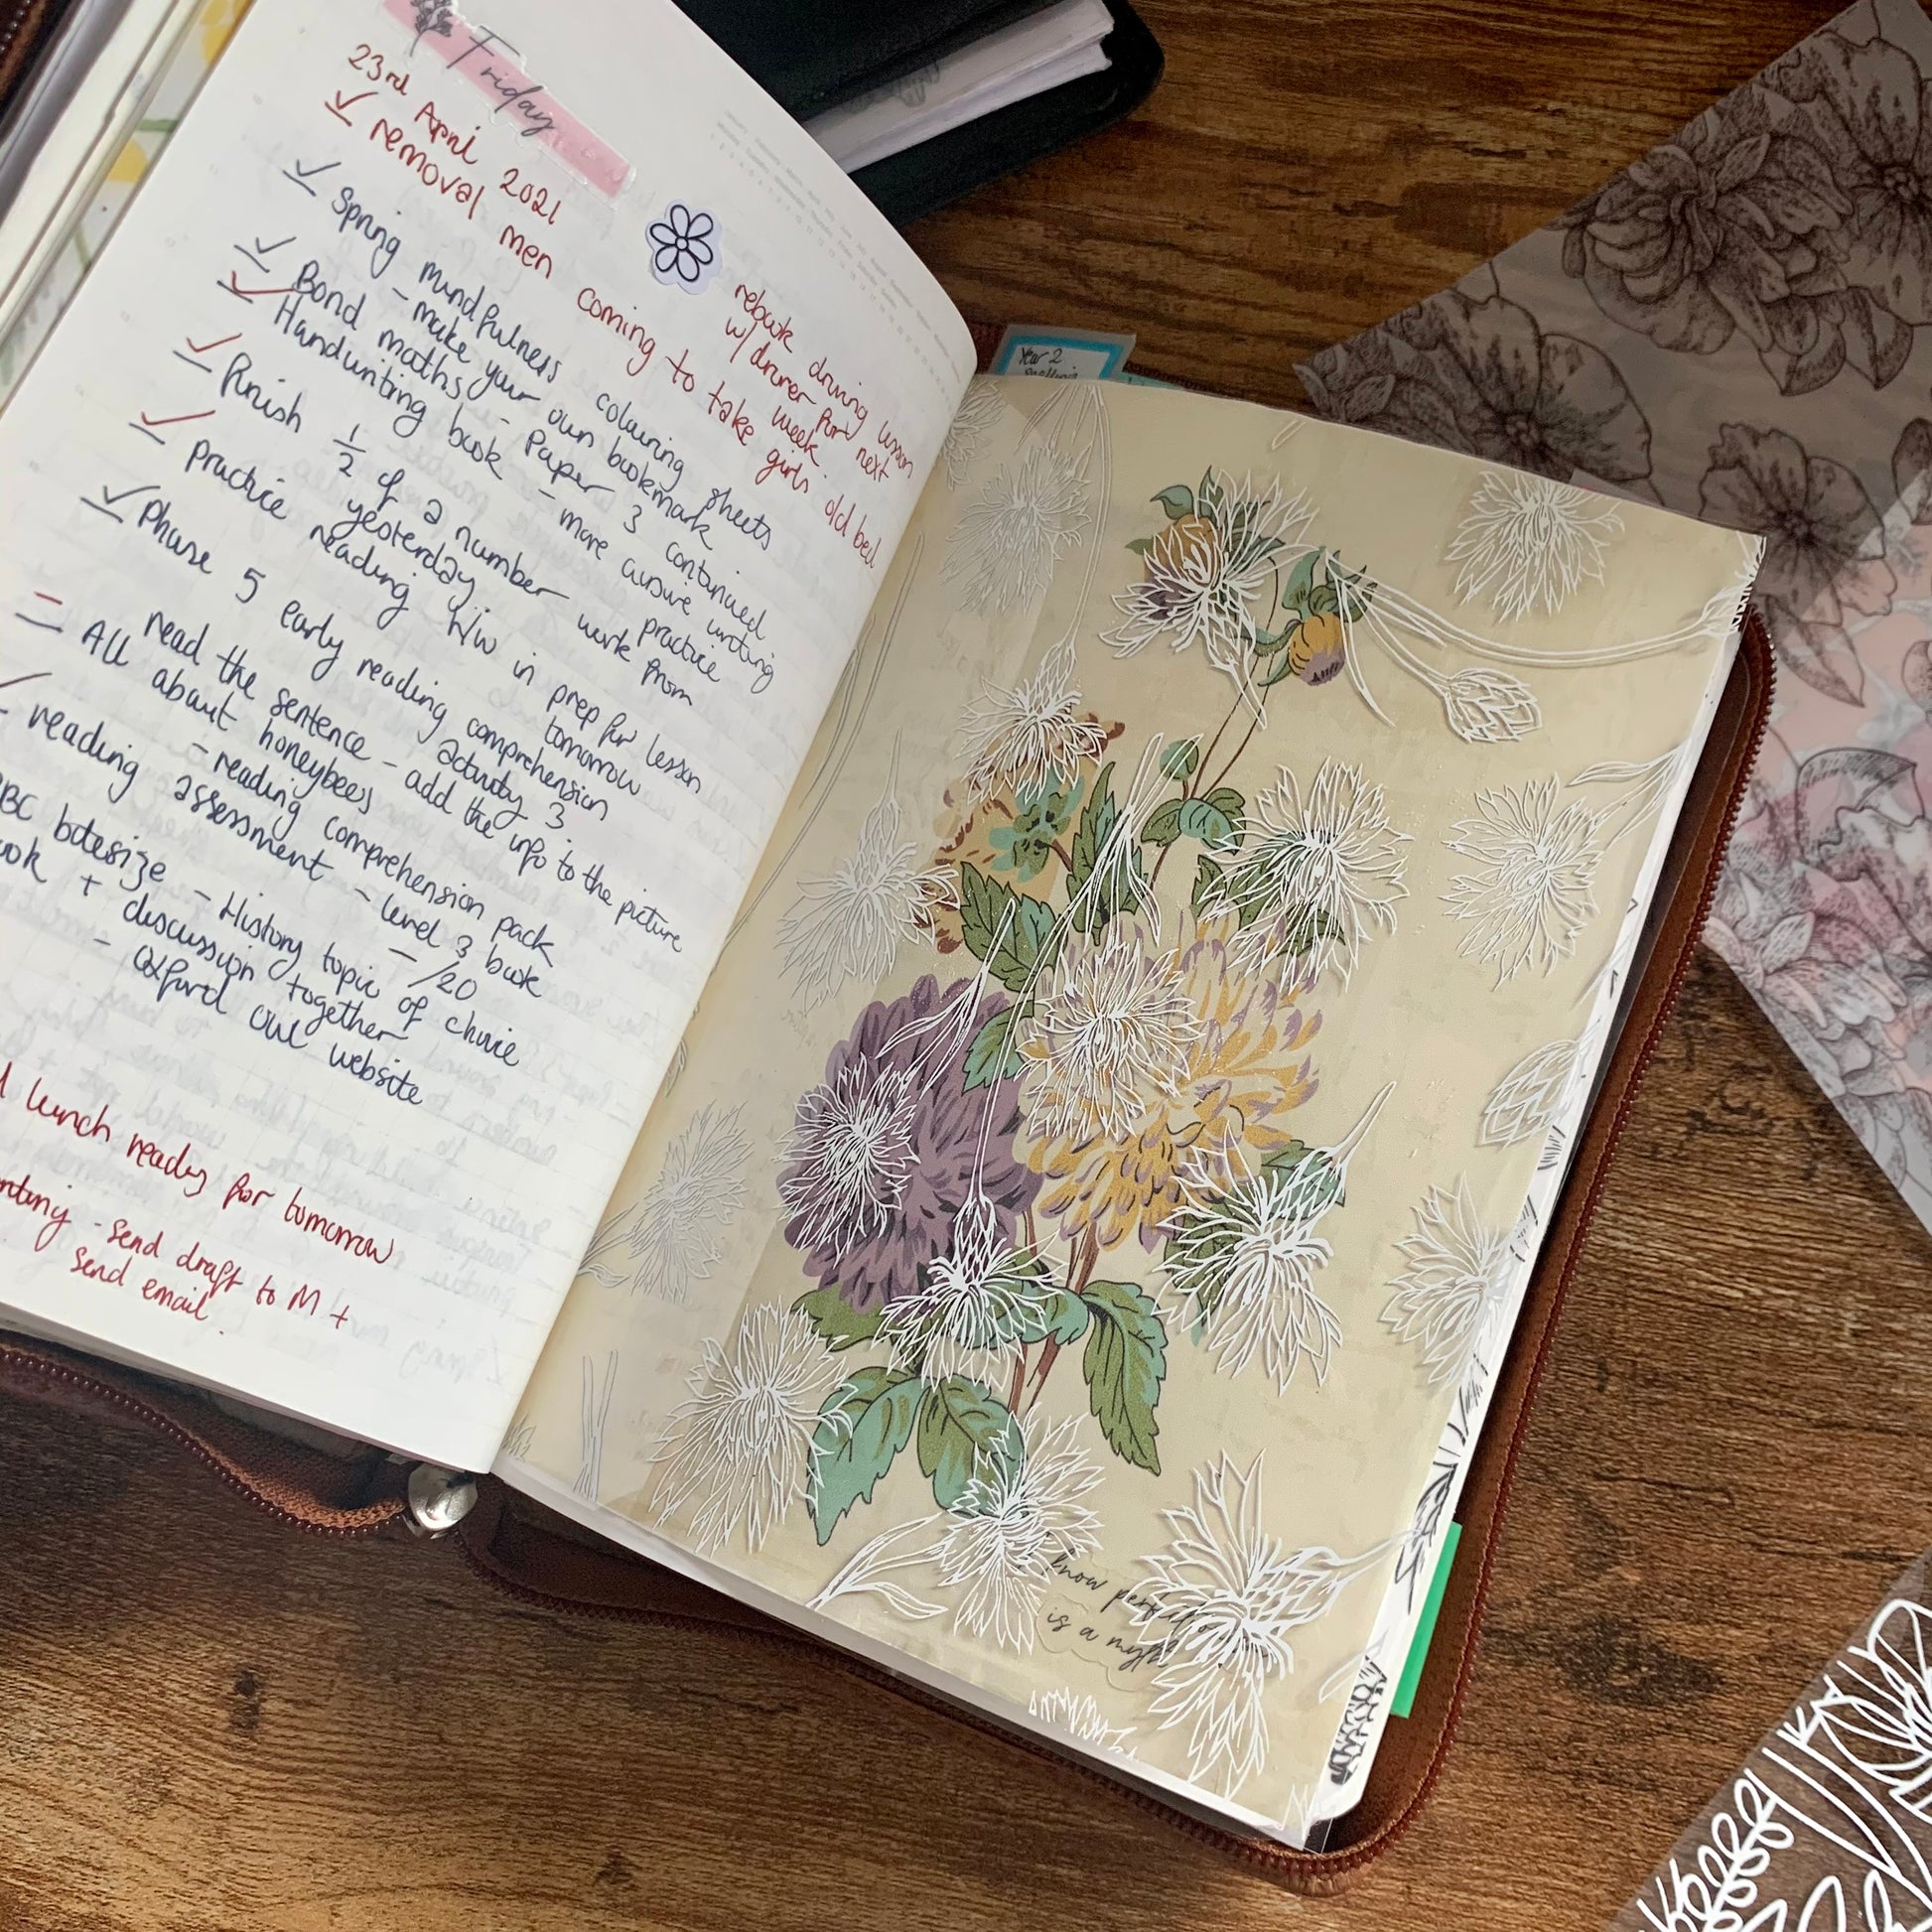 Friday
23rd April 2021
removal men coming to take girls old bed
rebook driving lesson
w/ driver for next
week.
Spring mindfulness colouring sheets
- make your own bookmark
Bond maths - Paper 3 continued
Handwriting book - more cursive writing
practice
Finish 1/2 of a number work from
yesterday
practice reading h/w in prep for lesson
tomorrow
Phase 5 early reading comprehension
activity 3
read the sentence - add the info to the picture
All about honeybees
- reading comprehension pack
- /20
reading assessment - level 3 book
BBC bitesize - History topic of choice
+ discussion together
- Oxford owl website
lunch ready for tomorrow
- send draft to M +
send email.
Year 2
know
is a myth